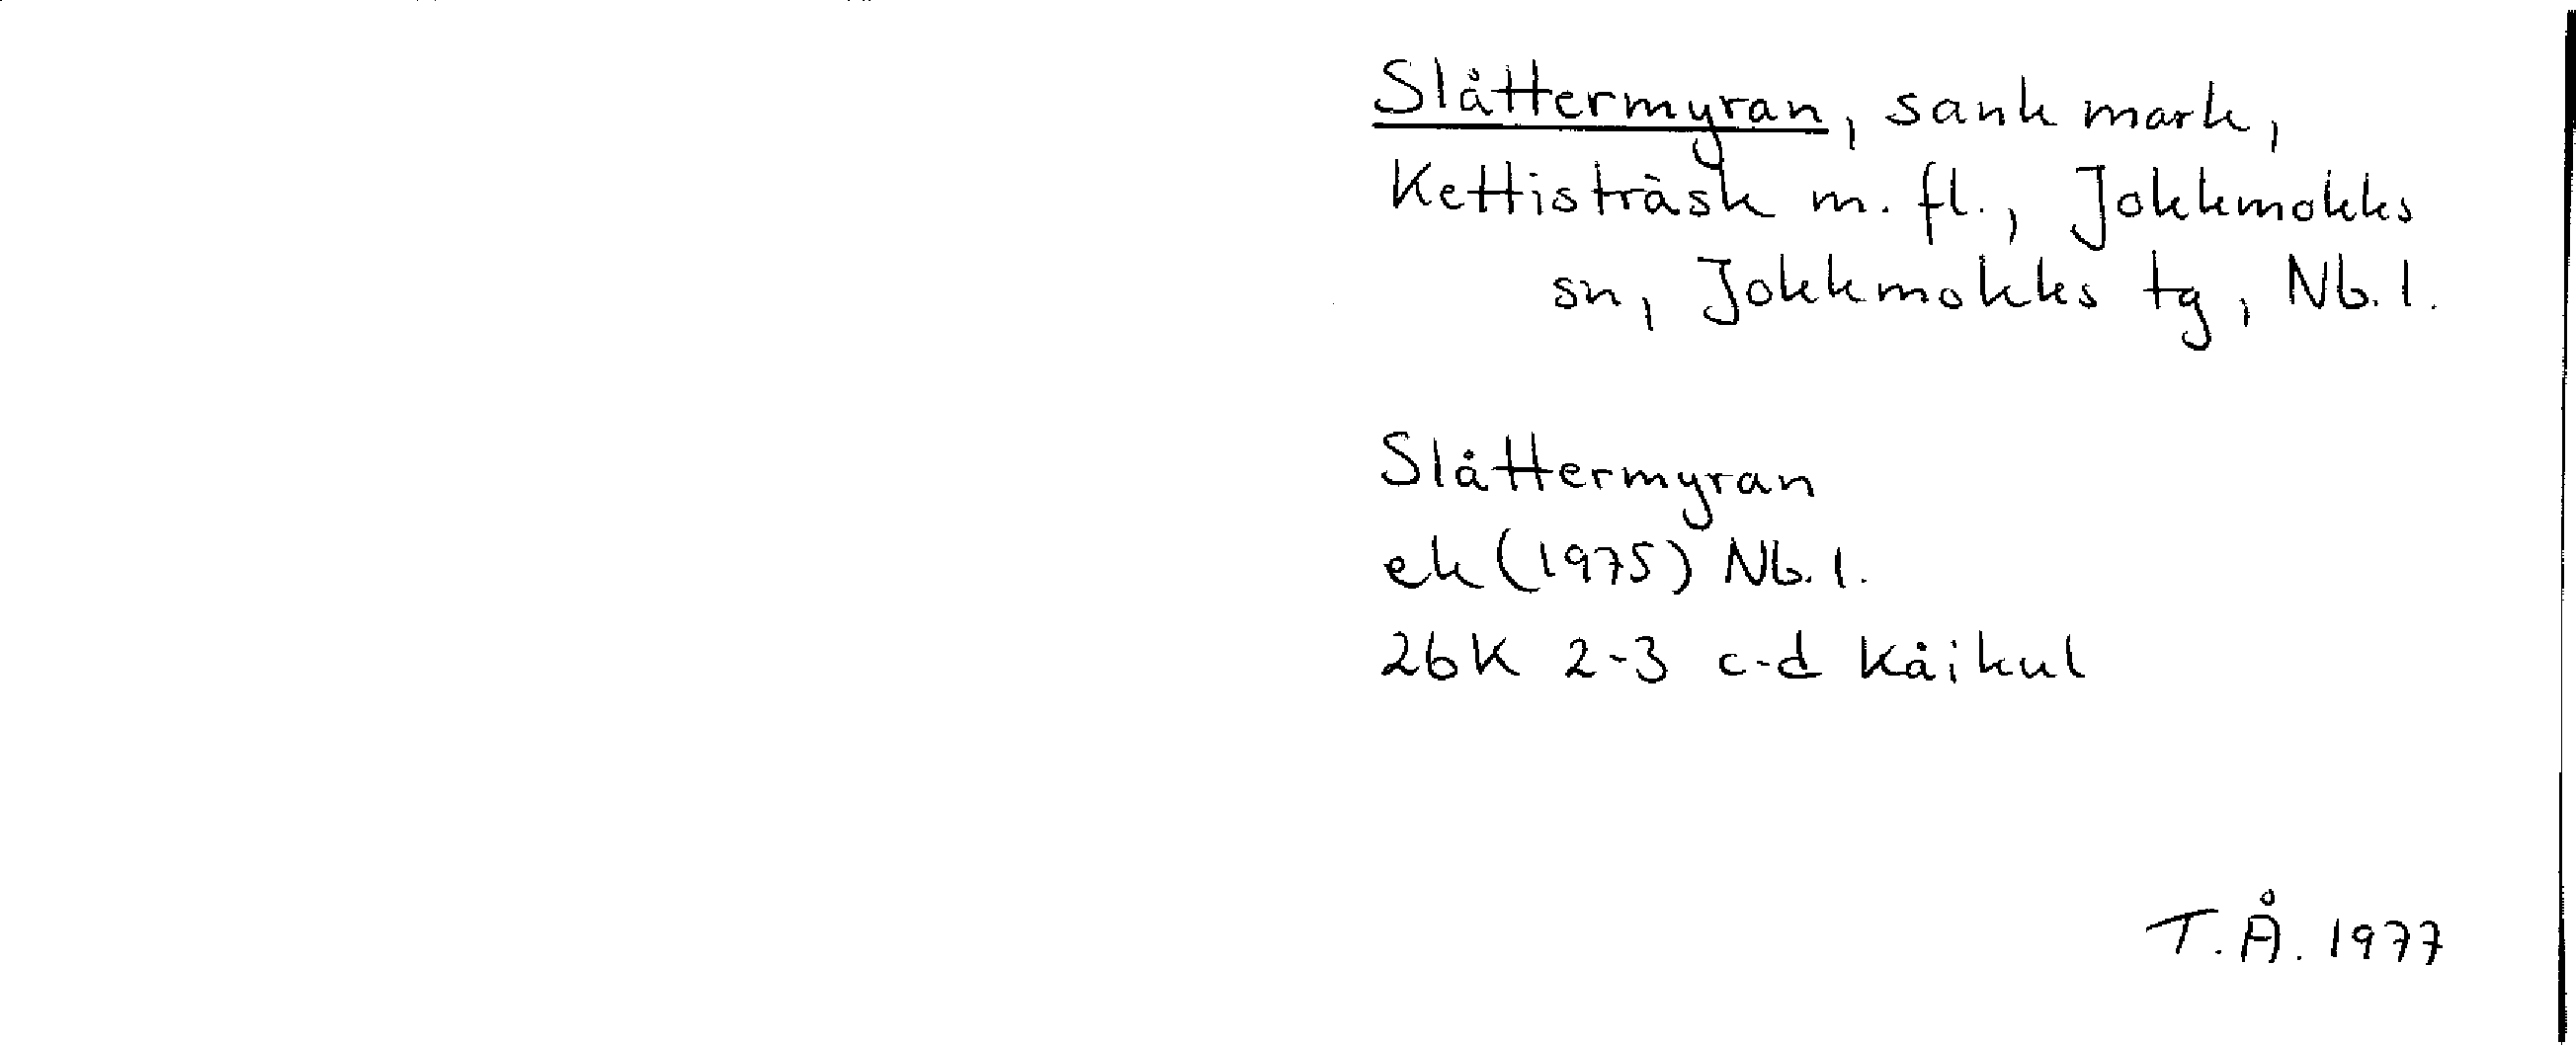 Slåttermyran, sank mark,
Kettisträsk m. fl., Jokkmokks
sn, Jokkmokks tg, Nb. l.
Slåttermyran
ek (1975) Nb. l.
26K 2-3 c-d Kåikul
T. Å. 1977